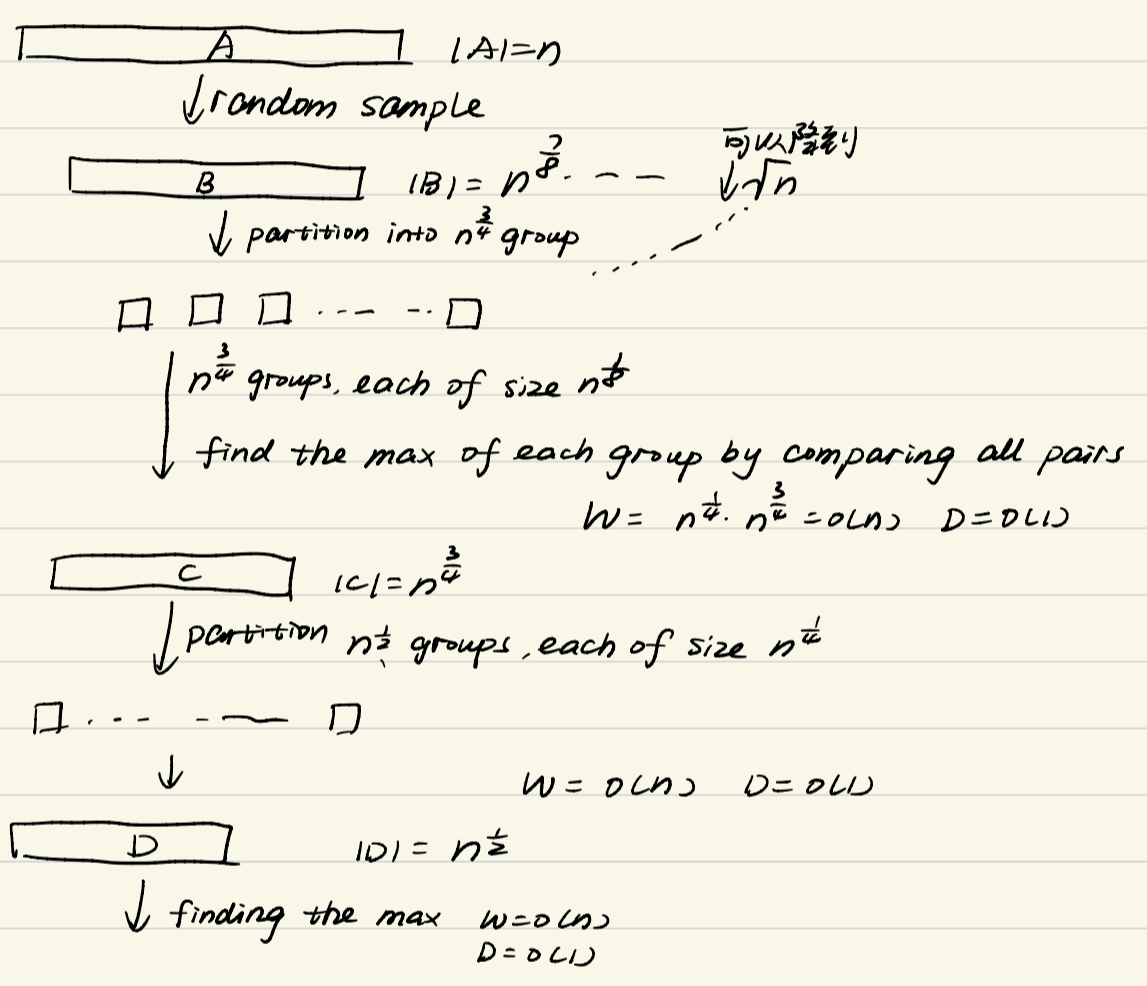 A |A|=n
↓random sample
B |B| = n^{7/8}. - - -
可以
↓√n
↓ partition into n^{3/4} group
□ □ □ ... - -.. □
n^{3/4} groups, each of size n^{1/8}
find the max of each group by comparing all pairs
W = n^{1/4}. n^{3/4} = O(n) D=O(1)
C |C|=n^{3/4}
partition n^{1/2} groups, each of size n^{1/4}
□ . - - - — □
↓ W = O(n) D= O(1)
D |D| = n^{1/2}
↓ finding the max W=O(n)
D=O(1)